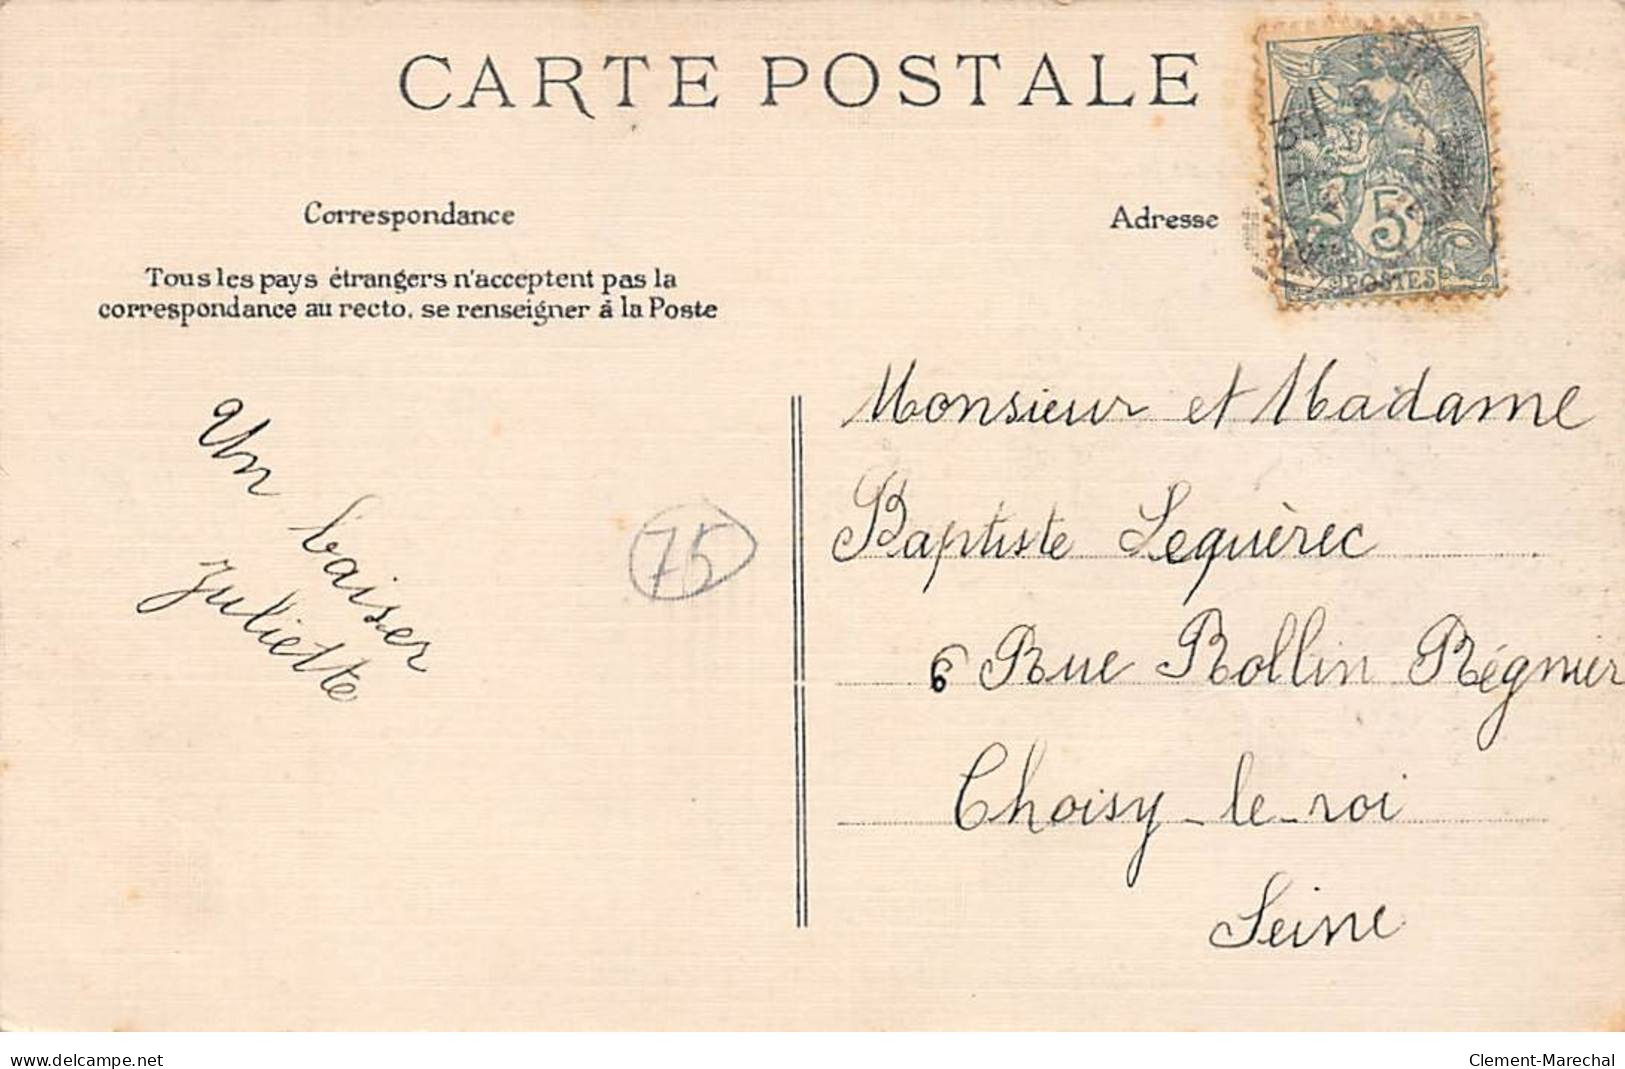 CARTE POSTALE
5
POSTES
Correspondance
Adresse
Tous les pays étrangers n'acceptent pas la
correspondance au recto, se renseigner à la Poste
Un baiser
Juliette
75
Monsieur et Madame
Baptiste Lequèrec
6 Rue Rollin Régnier
Choisy-le-roi
Seine
www.delcampe.net
Clement-Marechal